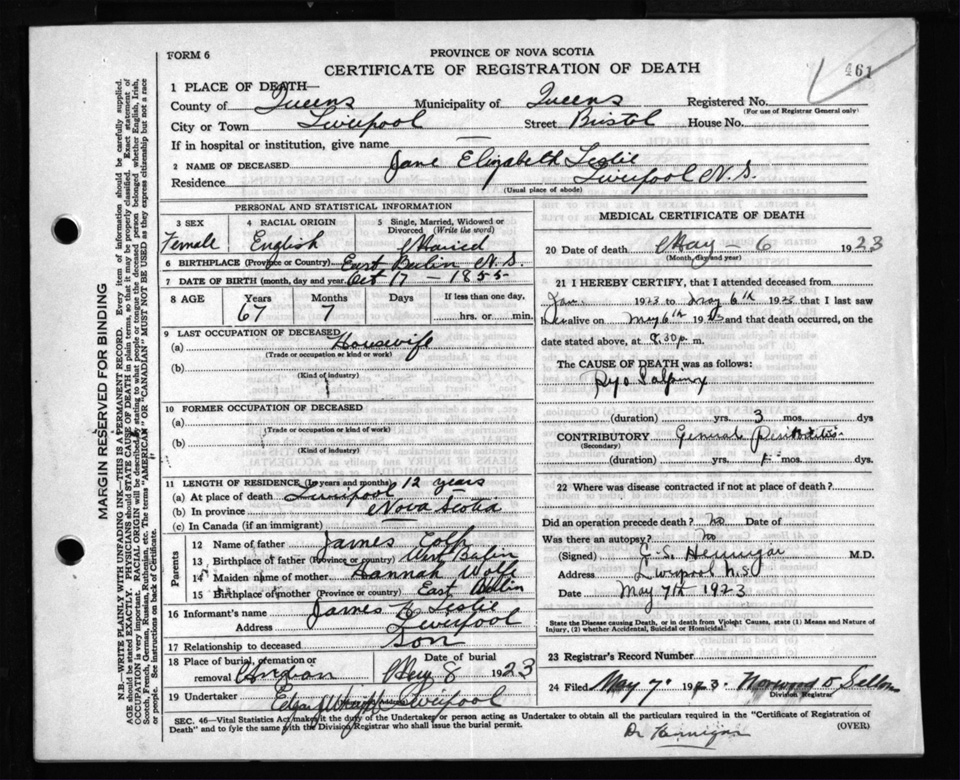 FORM 6
PROVINCE OF NOVA SCOTIA
CERTIFICATE OF REGISTRATION OF DEATH
461
1 PLACE OF DEATH—
County of Queens Municipality of Queens Registered No.
(For use of Registrar General only)
City or Town Liverpool Street Bristol House No.
If in hospital or institution, give name —
2 NAME OF DECEASED Jane Elizabeth Leslie
Residence Liverpool N.S.
(Usual place of abode)
PERSONAL AND STATISTICAL INFORMATION
3 SEX
Female
4 RACIAL ORIGIN
English
5 Single, Married, Widowed or
Divorced (Write the word)
Maried
6 BIRTHPLACE (Province or Country) East Berlin N.S.
7 DATE OF BIRTH (month, day and year) Oct 17 – 1855
8 AGE Years Months Days If less than one day,
67 7 hrs. or min.
9 LAST OCCUPATION OF DECEASED
(a) Housewife
(Trade or occupation or kind or work)
(b)
(Kind of industry)
10 FORMER OCCUPATION OF DECEASED
(a)
(Trade or occupation or kind of work)
(b)
(Kind of industry)
11 LENGTH OF RESIDENCE (in years and months) 12 years
(a) At place of death Liverpool
(b) In province Nova Scotia
(c) In Canada (if an immigrant)
Parents
12 Name of father James
13 Birthplace of father (Province or country) West Berlin
14 Maiden name of mother Hannah Wolfe
15 Birthplace of mother (Province or country) East Berlin
16 Informant's name James Leslie
Address Liverpool
17 Relationship to deceased Son
18 Place of burial, cremation or Date of burial
removal May 8 1923
19 Undertaker Edgar Liverpool
MEDICAL CERTIFICATE OF DEATH
20 Date of death May – 6 1923
(Month, day and year)
21 I HEREBY CERTIFY, that I attended deceased from
Jan. 1923 to May 6th 1923 that I last saw
her alive on May 6th 1923 and that death occurred, on the
date stated above, at 8.30 p. m.
The CAUSE OF DEATH was as follows:
Pyo Salpinx
(duration) yrs. 3 mos. dys
CONTRIBUTORY General Peritonitis
(Secondary)
(duration) yrs. 1 mos. dys.
22 Where was disease contracted if not at place of death?
Did an operation precede death? no Date of
Was there an autopsy? no
(Signed) Hennigar M.D.
Address Liverpool N.S.
Date May 7th 1923
State the Disease causing Death, or in death from Violent Causes, state (1) Means and Nature of
Injury, (2) whether Accidental, Suicidal or Homicidal.
23 Registrar's Record Number
24 Filed May 7 1923. Norwood
Division Registrar
SEC. 46—Vital Statistics Act makes it the duty of the Undertaker or person acting as Undertaker to obtain all the particulars required in the "Certificate of Registration of
Death" and to file the same with the Division Registrar who shall issue the burial permit.
(OVER)
Dr Hennigar
MARGIN RESERVED FOR BINDING
N.B.—WRITE PLAINLY WITH UNFADING INK—THIS IS A PERMANENT RECORD. Every item of information should be carefully supplied.
AGE should be stated EXACTLY. PHYSICIANS should STATE CAUSE OF DEATH in plain terms, so that it may be properly classified. Exact statement of
OCCUPATION is very important. RACIAL ORIGIN will be described by stating to what people or tongue the deceased person belonged whether English, Irish,
Scotch, French, German, Russian, Ruthenian, etc. The terms "AMERICAN" OR "CANADIAN" MUST NOT BE USED as they express citizenship but not a race
or people. See instructions on back of Certificate.